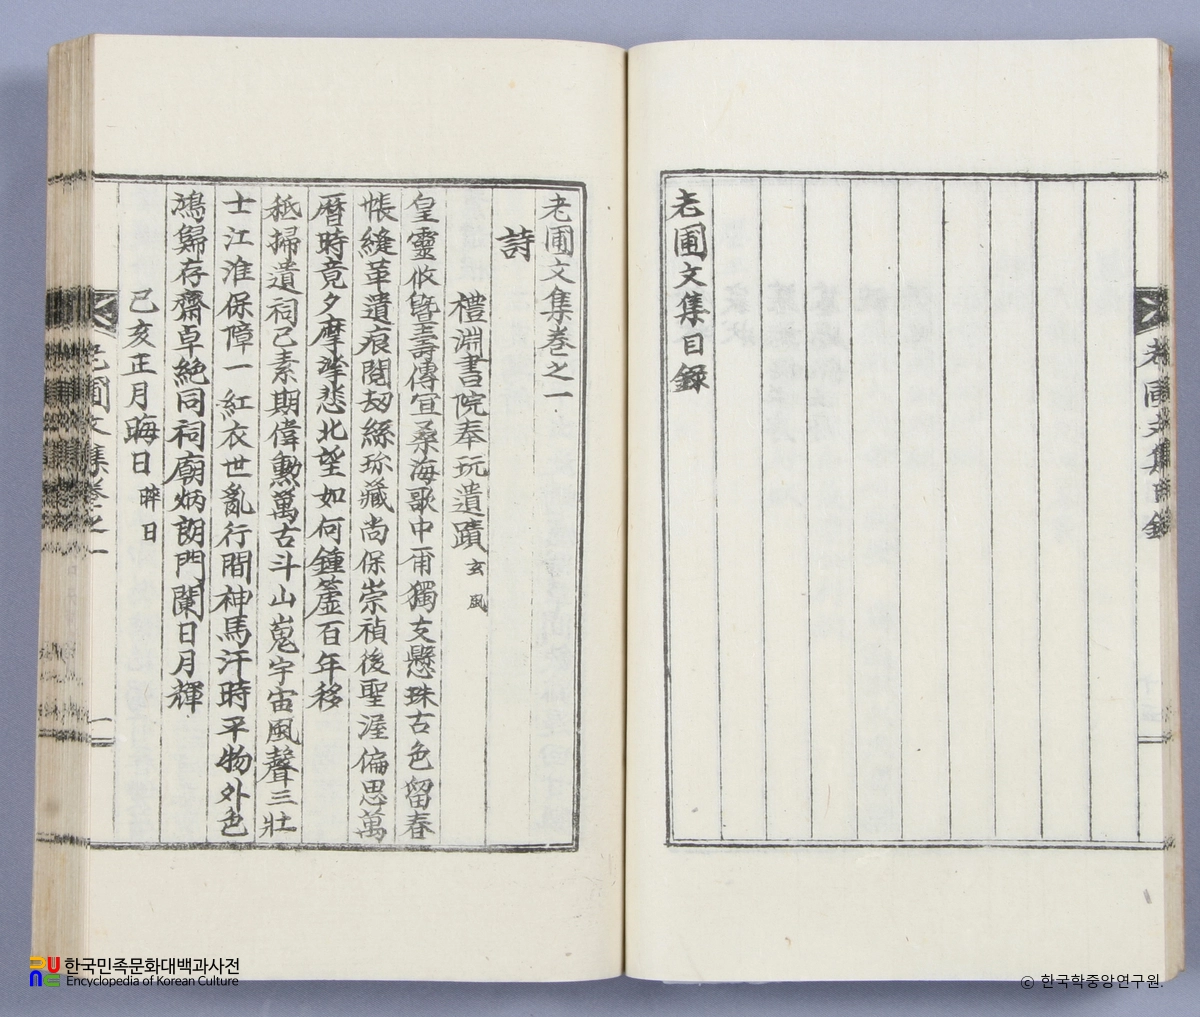 老圃文集目録
老圃文集目録
老圃文集卷之一
詩
禮淵書院奉玩遺蹟 玄風
皇靈攸曁壽傳宣桑海歌中甫獨攴懸珠古色留春
帳縫革遺痕閱刼絲珎藏尚保崇禎後聖渥偏思萬
曆時竟夕摩挲悲北望如何鍾簴百年移
秪掃遺祠已素期偉勲萬古斗山嵬宇宙風聲三壯
士江淮保障一紅衣世亂行間神馬汗時平物外色
鴻歸存齋卓絶同祠廟炳朗門闌日月輝
己亥正月晦日 晬日
老圃文集卷之一
一
한국민족문화대백과사전
Encyclopedia of Korean Culture
© 한국학중앙연구원.